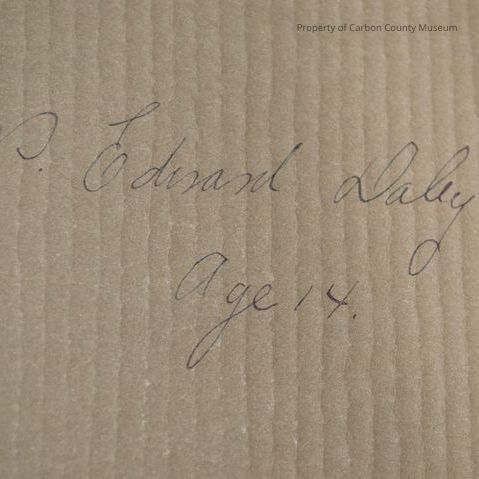 Property of Carbon County Museum
P. Edward Daley
Age 14.